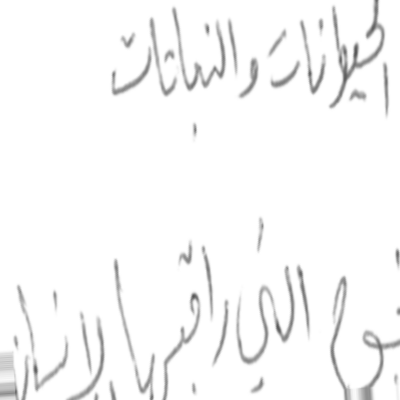 الحيوانات والنباتات
التي راقبها الإنسان